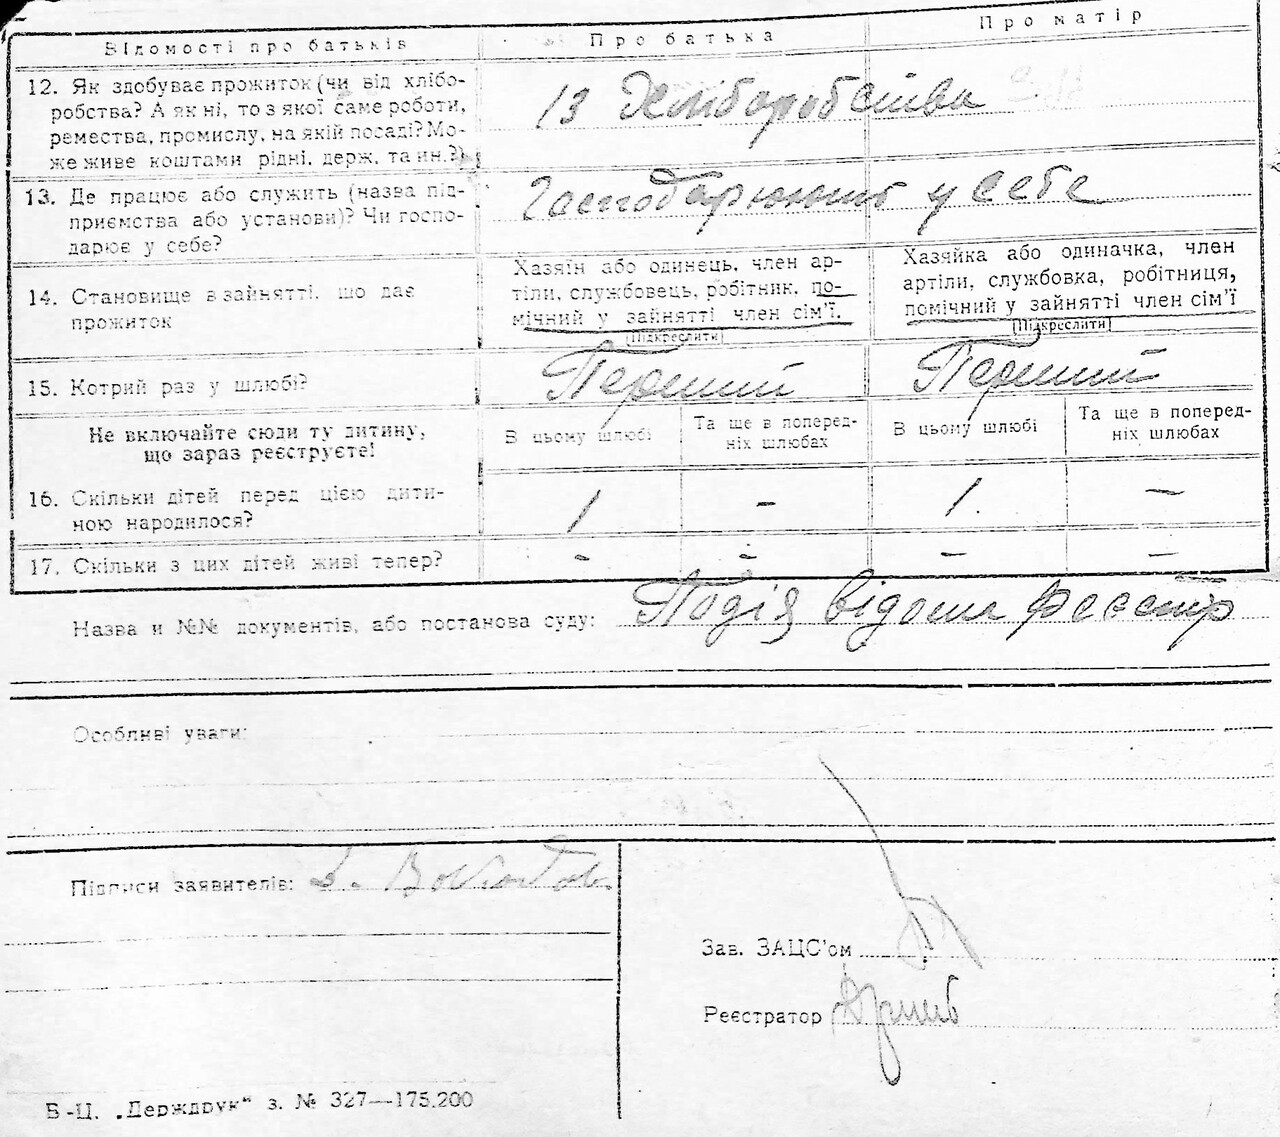 Відомості про батьків Про батька Про матір
12. Як здобуває прожиток (чи від хлібо-
робства? А як ні, то з якої саме роботи,
ремества, промислу, на якій посаді? Мо-
же живе коштами рідні, держ. та ин.?)
Із хліборобства
13. Де працює або служить (назва під-
приємства або установи)? Чи госпо-
дарює у себе?
Господарюють у себе
14. Становище в зайнятті, що дає
прожиток
Хазяїн або одинець, член ар-
тіли, службовець, робітник, по-
мічний у зайнятті член сім'ї.
(Підкреслити)
Хазяйка або одиначка, член
артіли, службовка, робітниця,
помічний у зайнятті член сім'ї
(Підкреслити)
15. Котрий раз у шлюбі? Перший Перший
Не включайте сюди ту дитину,
що зараз реєструєте!
В цьому шлюбі
Та ще в поперед-
ніх шлюбах
В цьому шлюбі
Та ще в поперед-
ніх шлюбах
16. Скільки дітей перед цією дити-
ною народилося?
1 - 1. -
17. Скільки з цих дітей живі тепер? - - - -
Назва и №№ документів, або постанова суду: Подія відома реєстр
Особливі уваги:
Підписи заявителів:
Зав. ЗАЦС'ом
Реєстратор
Б-Ц. „Держдрук“ з. № 327—175.200